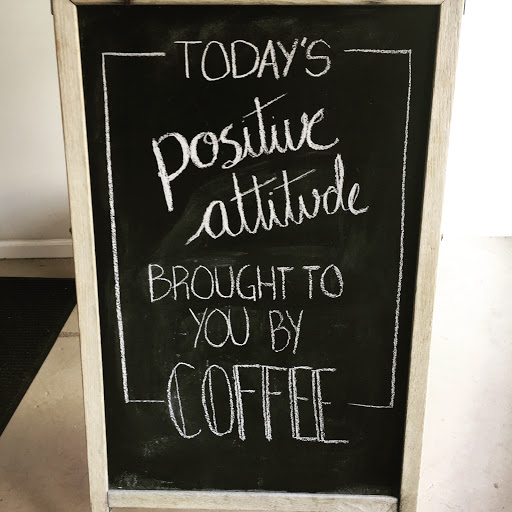 TODAY'S
positive
attitude
BROUGHT TO
YOU BY
COFFEE